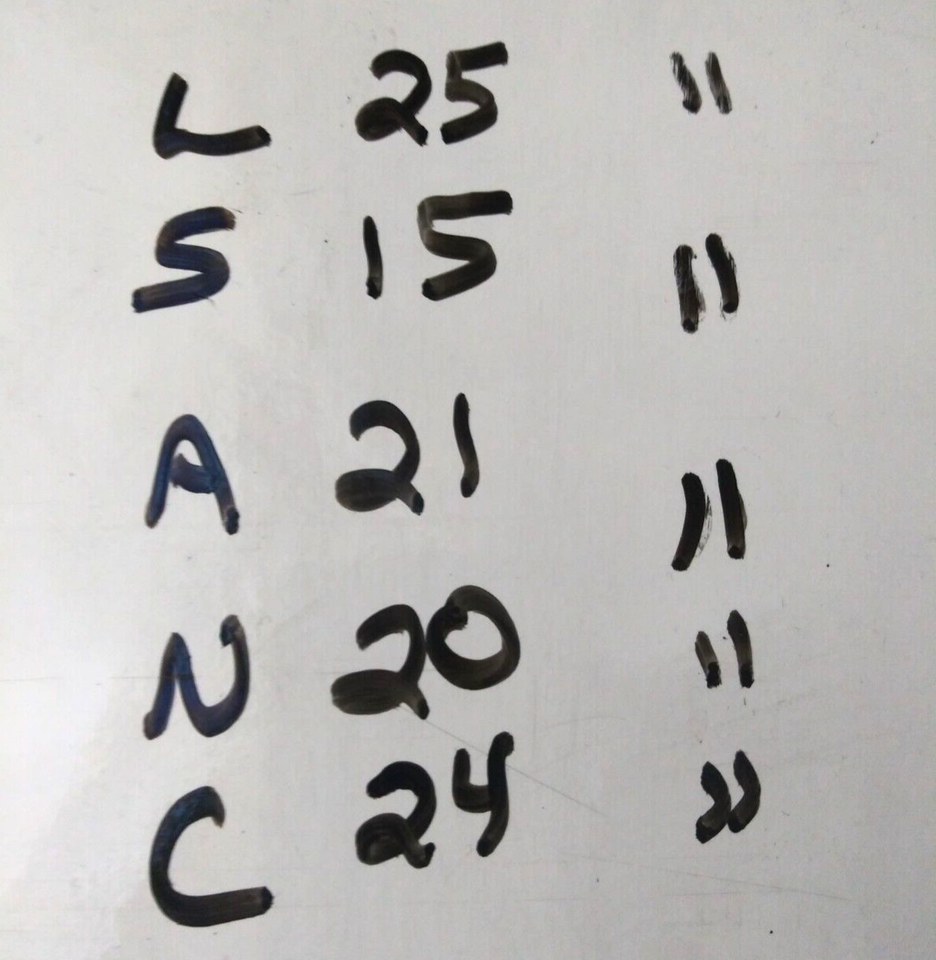 L 25 "
S 15 "
A 21 "
N 20 "
C 24 "